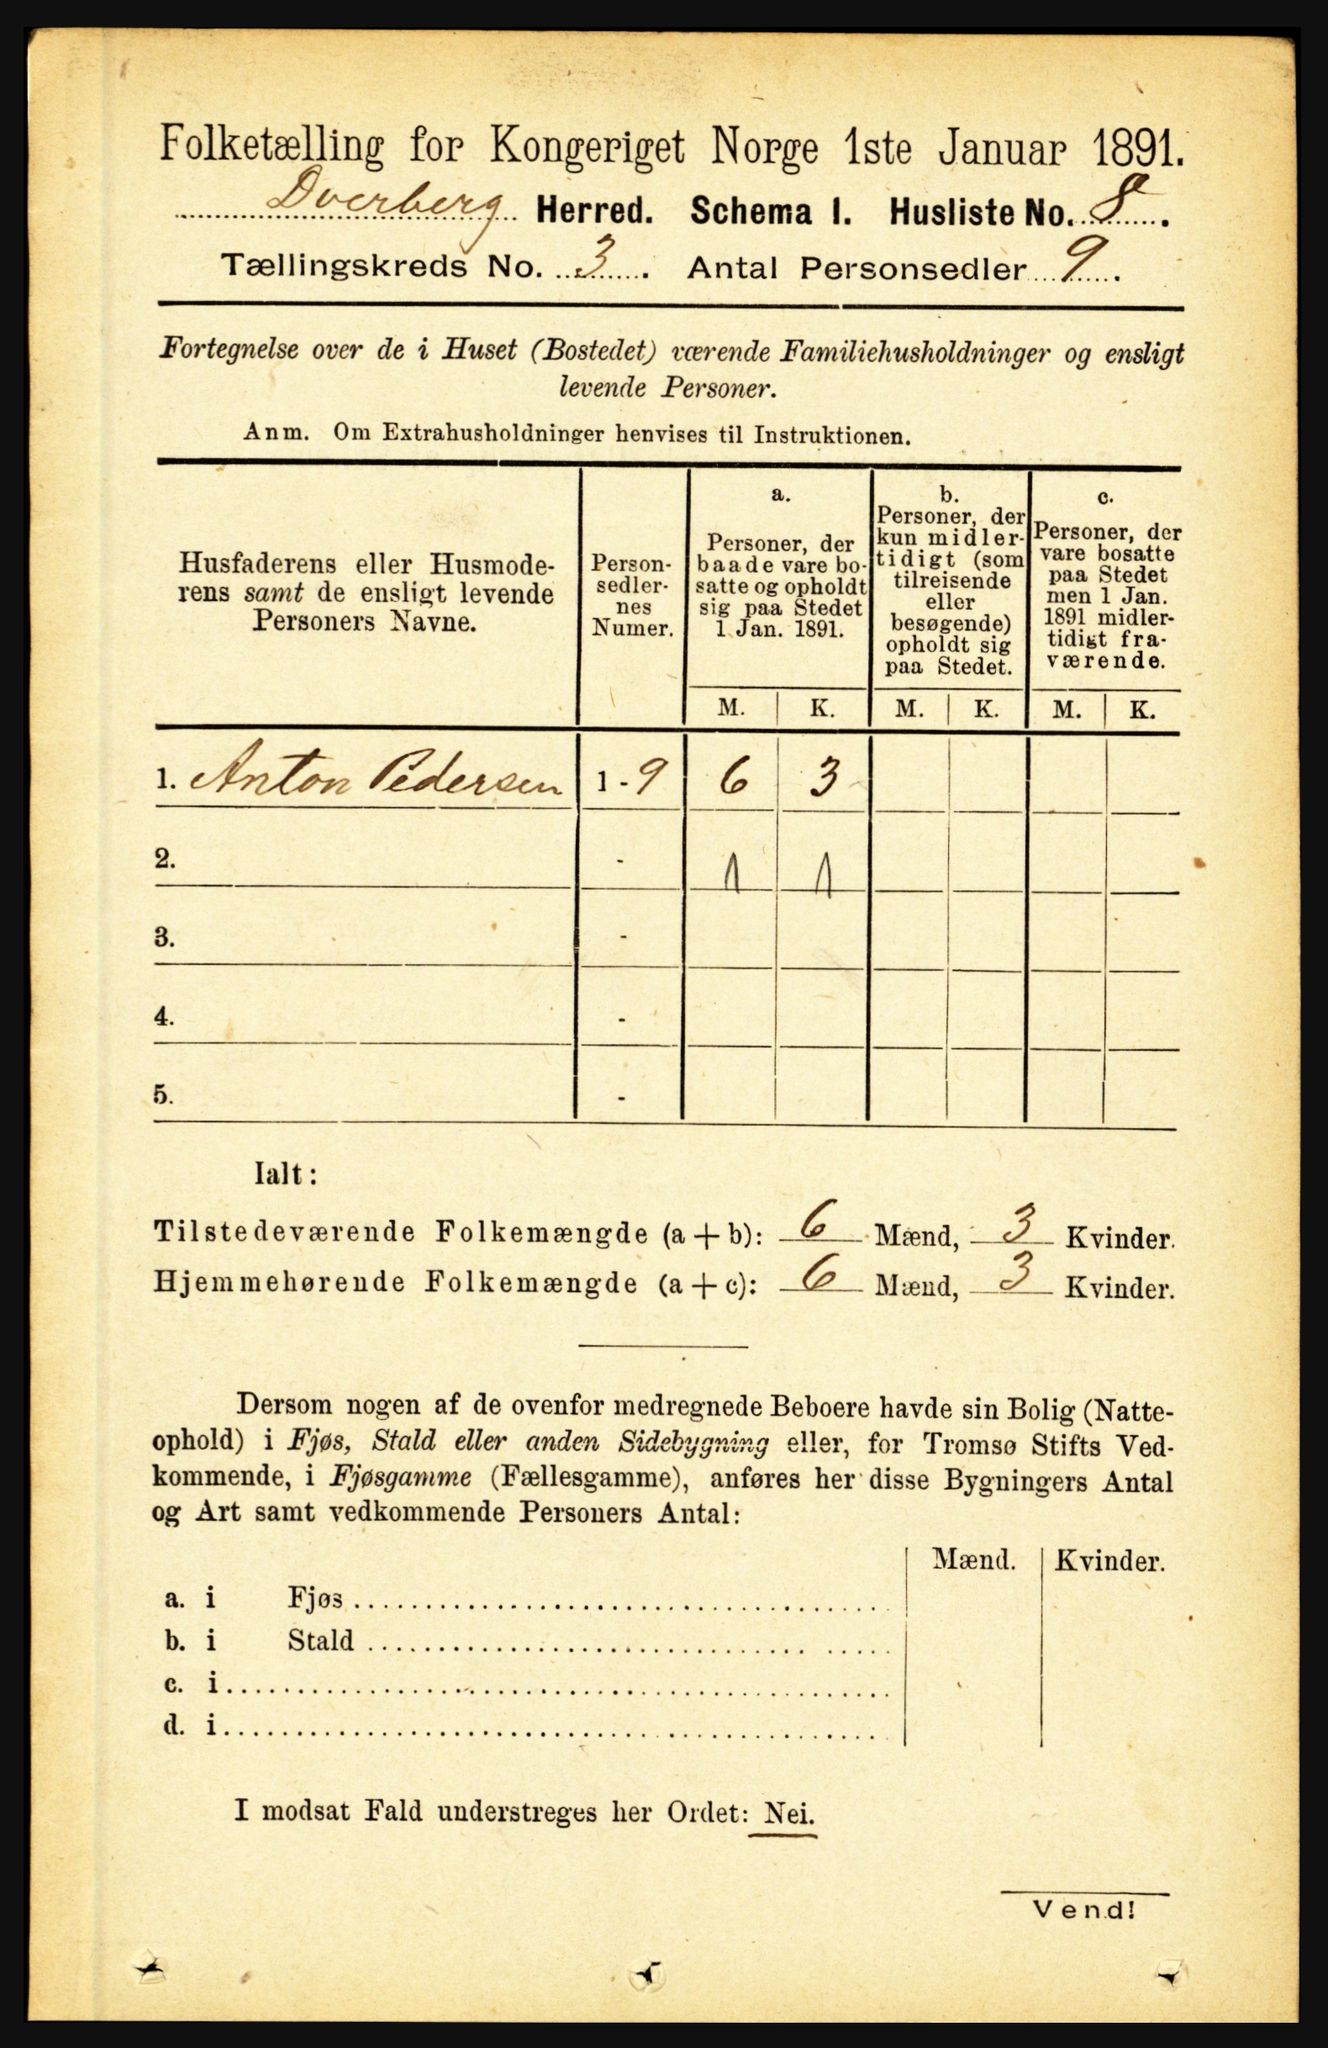 Folketælling for Kongeriget Norge 1ste Januar 1891.
Dverberg Herred. Schema I. Husliste No. 8.
Tællingskreds No. 3. Antal Personsedler 9.
Fortegnelse over de i Huset (Bostedet) værende Familiehusholdninger og ensligt
levende Personer.
Anm. Om Extrahusholdninger henvises til Instruktionen.
Husfaderens eller Husmode-
rens samt de ensligt levende
Personers Navne.
Person-
sedler-
nes
Numer.
a.
Personer, der
baade vare bo-
satte og opholdt
sig paa Stedet
1 Jan. 1891.
b.
Personer, der
kun midler-
tidigt (som
tilreisende
eller
besøgende)
opholdt sig
paa Stedet.
c.
Personer, der
vare bosatte
paa Stedet
men 1 Jan.
1891 midler-
tidigt fra-
værende.
M. K. M. K. M. K.
1. Anton Pedersen 1 - 9 6 3
2. - 1 1
3. -
4. -
5. -
Ialt:
Tilstedeværende Folkemængde (a + b): 6 Mænd, 3 Kvinder.
Hjemmehørende Folkemængde (a + c): 6 Mænd, 3 Kvinder.
Dersom nogen af de ovenfor medregnede Beboere havde sin Bolig (Natte-
ophold) i Fjøs, Stald eller anden Sidebygning eller, for Tromsø Stifts Ved-
kommende, i Fjøsgamme (Fællesgamme), anføres her disse Bygningers Antal
og Art samt vedkommende Personers Antal:
Mænd. Kvinder.
a. i Fjøs
b. i Stald
c. i
d. i
I modsat Fald understreges her Ordet: Nei.
Vend!